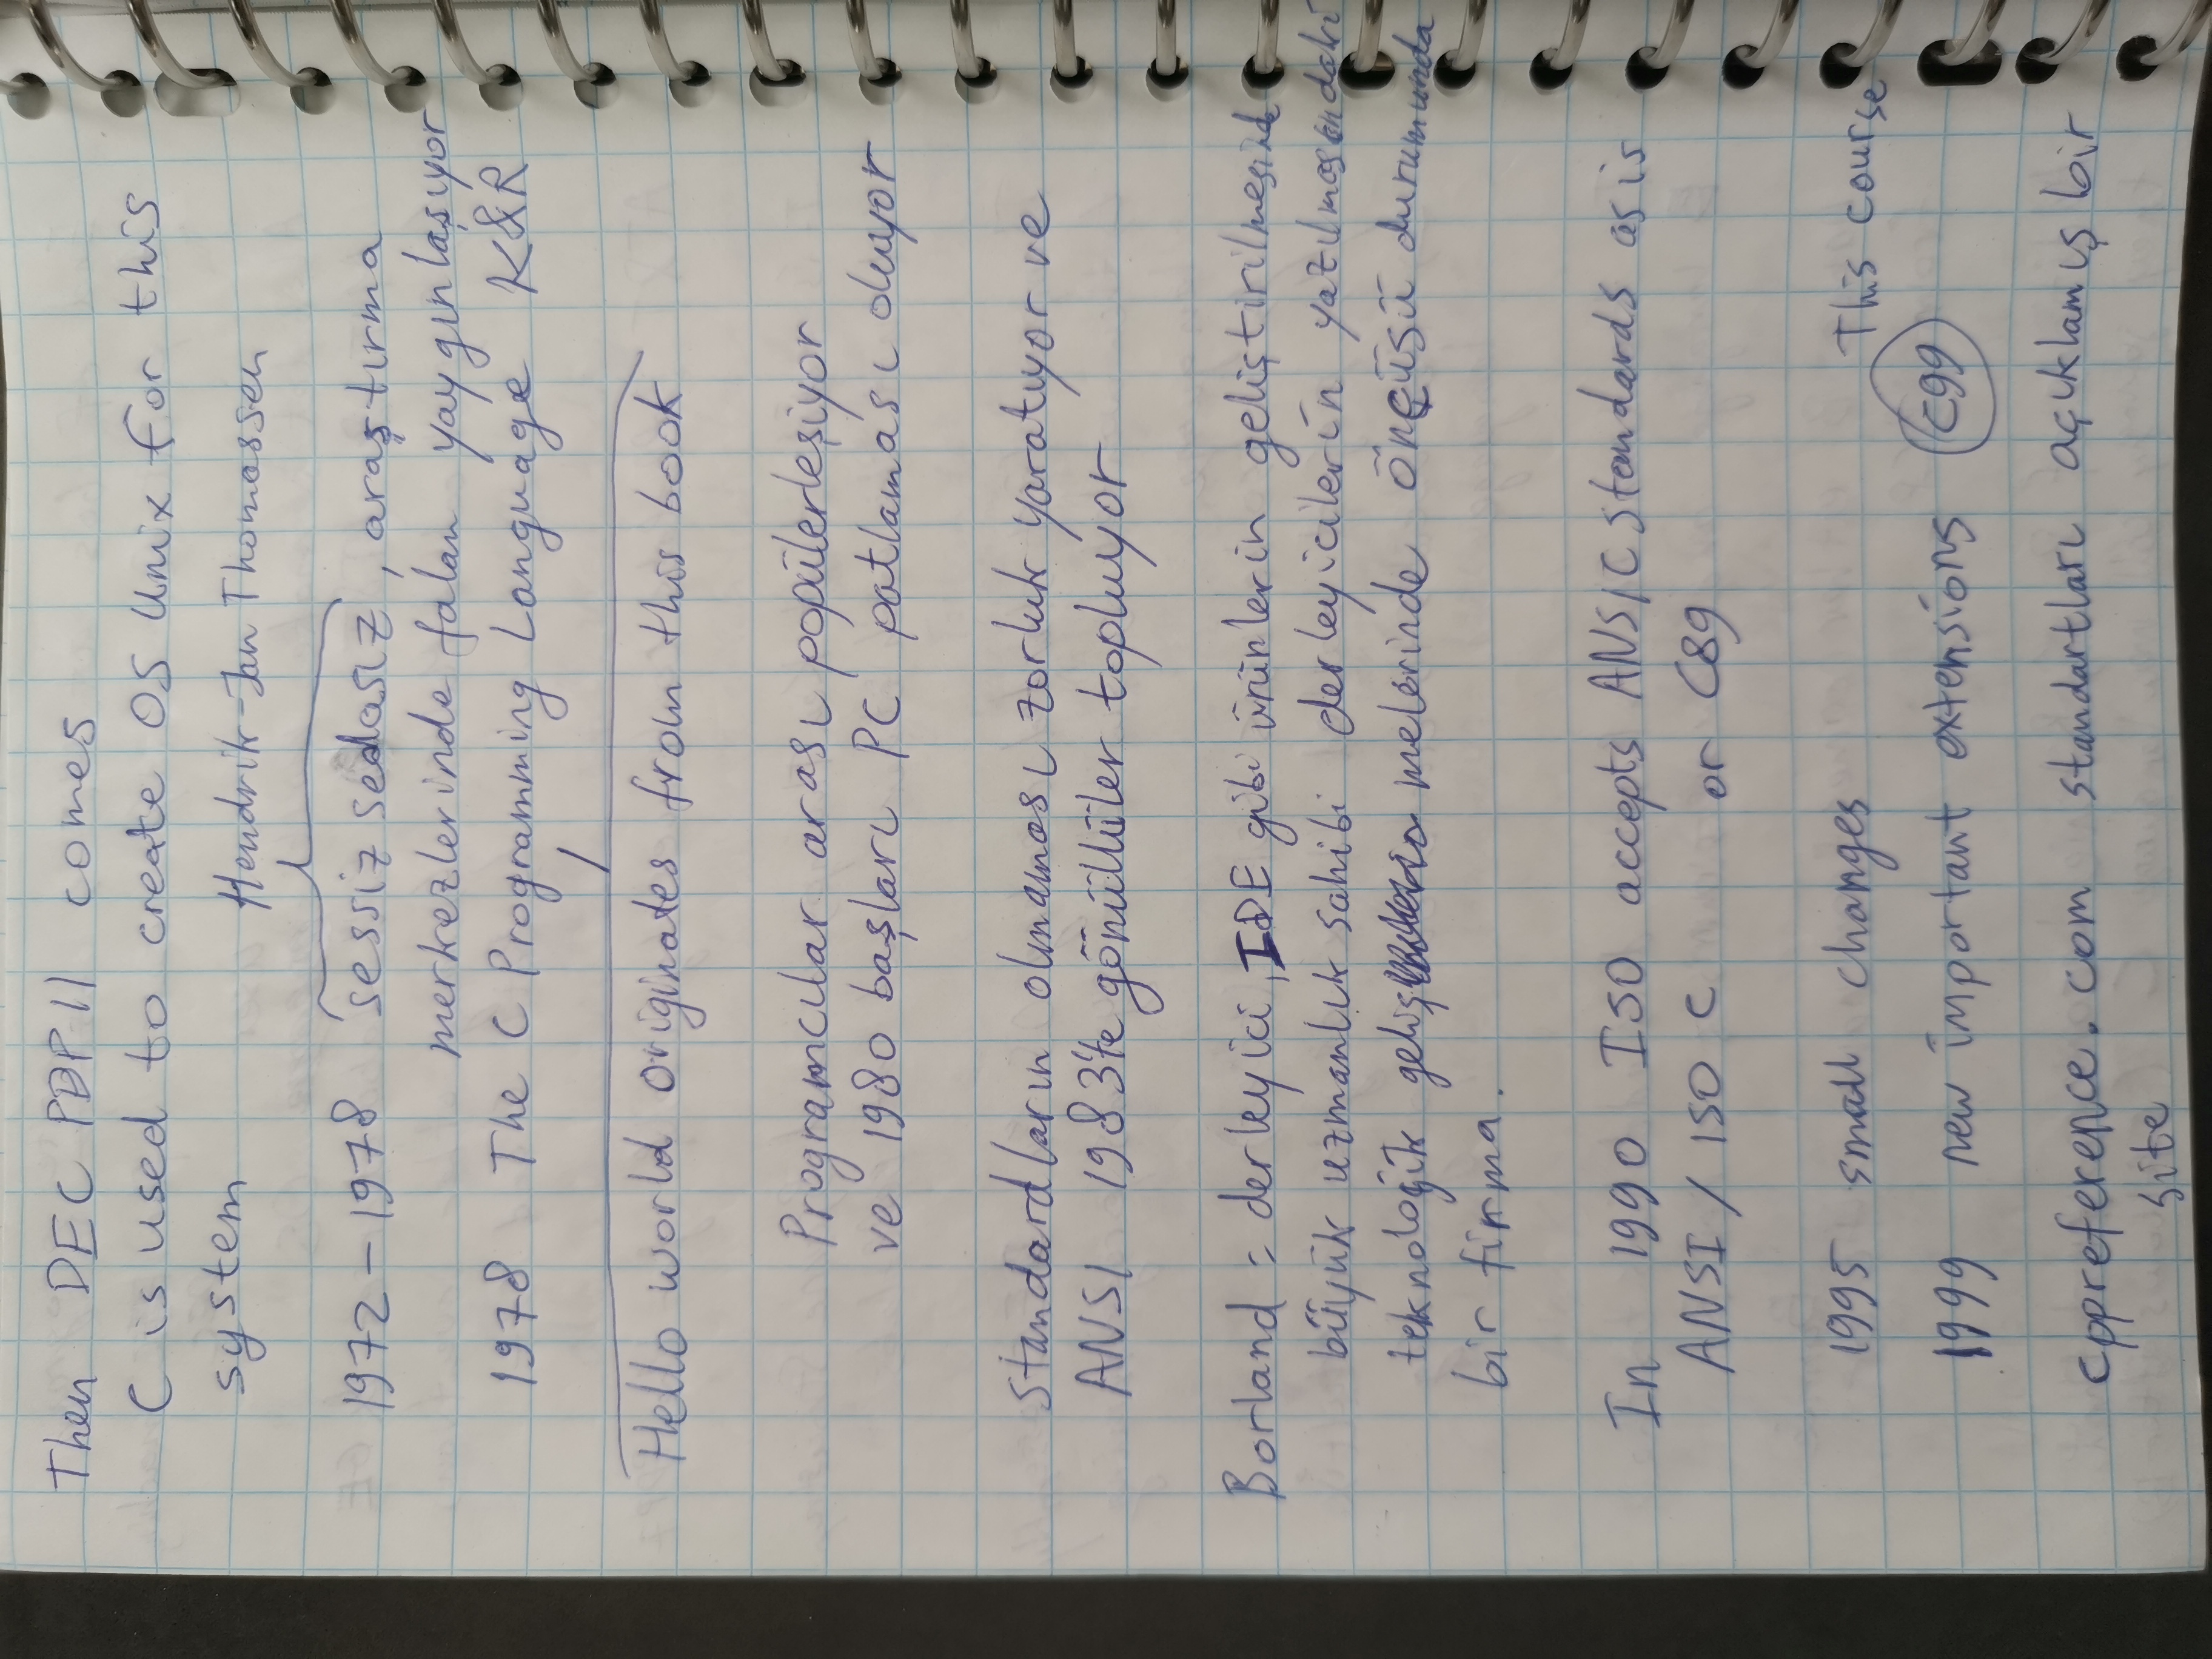 Then DEC PDP 11 comes
C is used to create OS Unix for this
system
Hendrik-Jan Thomassen
1972 - 1978 sessiz sedasız, araştırma
merkezlerinde falan yaygınlaşıyor
1978 The C Programming Language K&R
Hello world originates from this book
Programcılar arası popülerleşiyor
ve 1980 başları PC patlaması oluyor
Standardların olmaması zorluk yaratıyor ve
ANSI 1983'te gönüllüler topluyor
Borland = derleyici, IDE gibi ürünlerin geliştirilmesinde
büyük uzmanlık sahibi derleyicilerin yazılmasındaki
teknoloğik geliş melerinde öncüsü durumunda
bir firma.
In 1990 ISO accepts ANSI C standards as is
ANSI / ISO C or C89
1995 small changes
This course
1999 new important extensions C99
cppreference.com standartları açıklamış bir
site